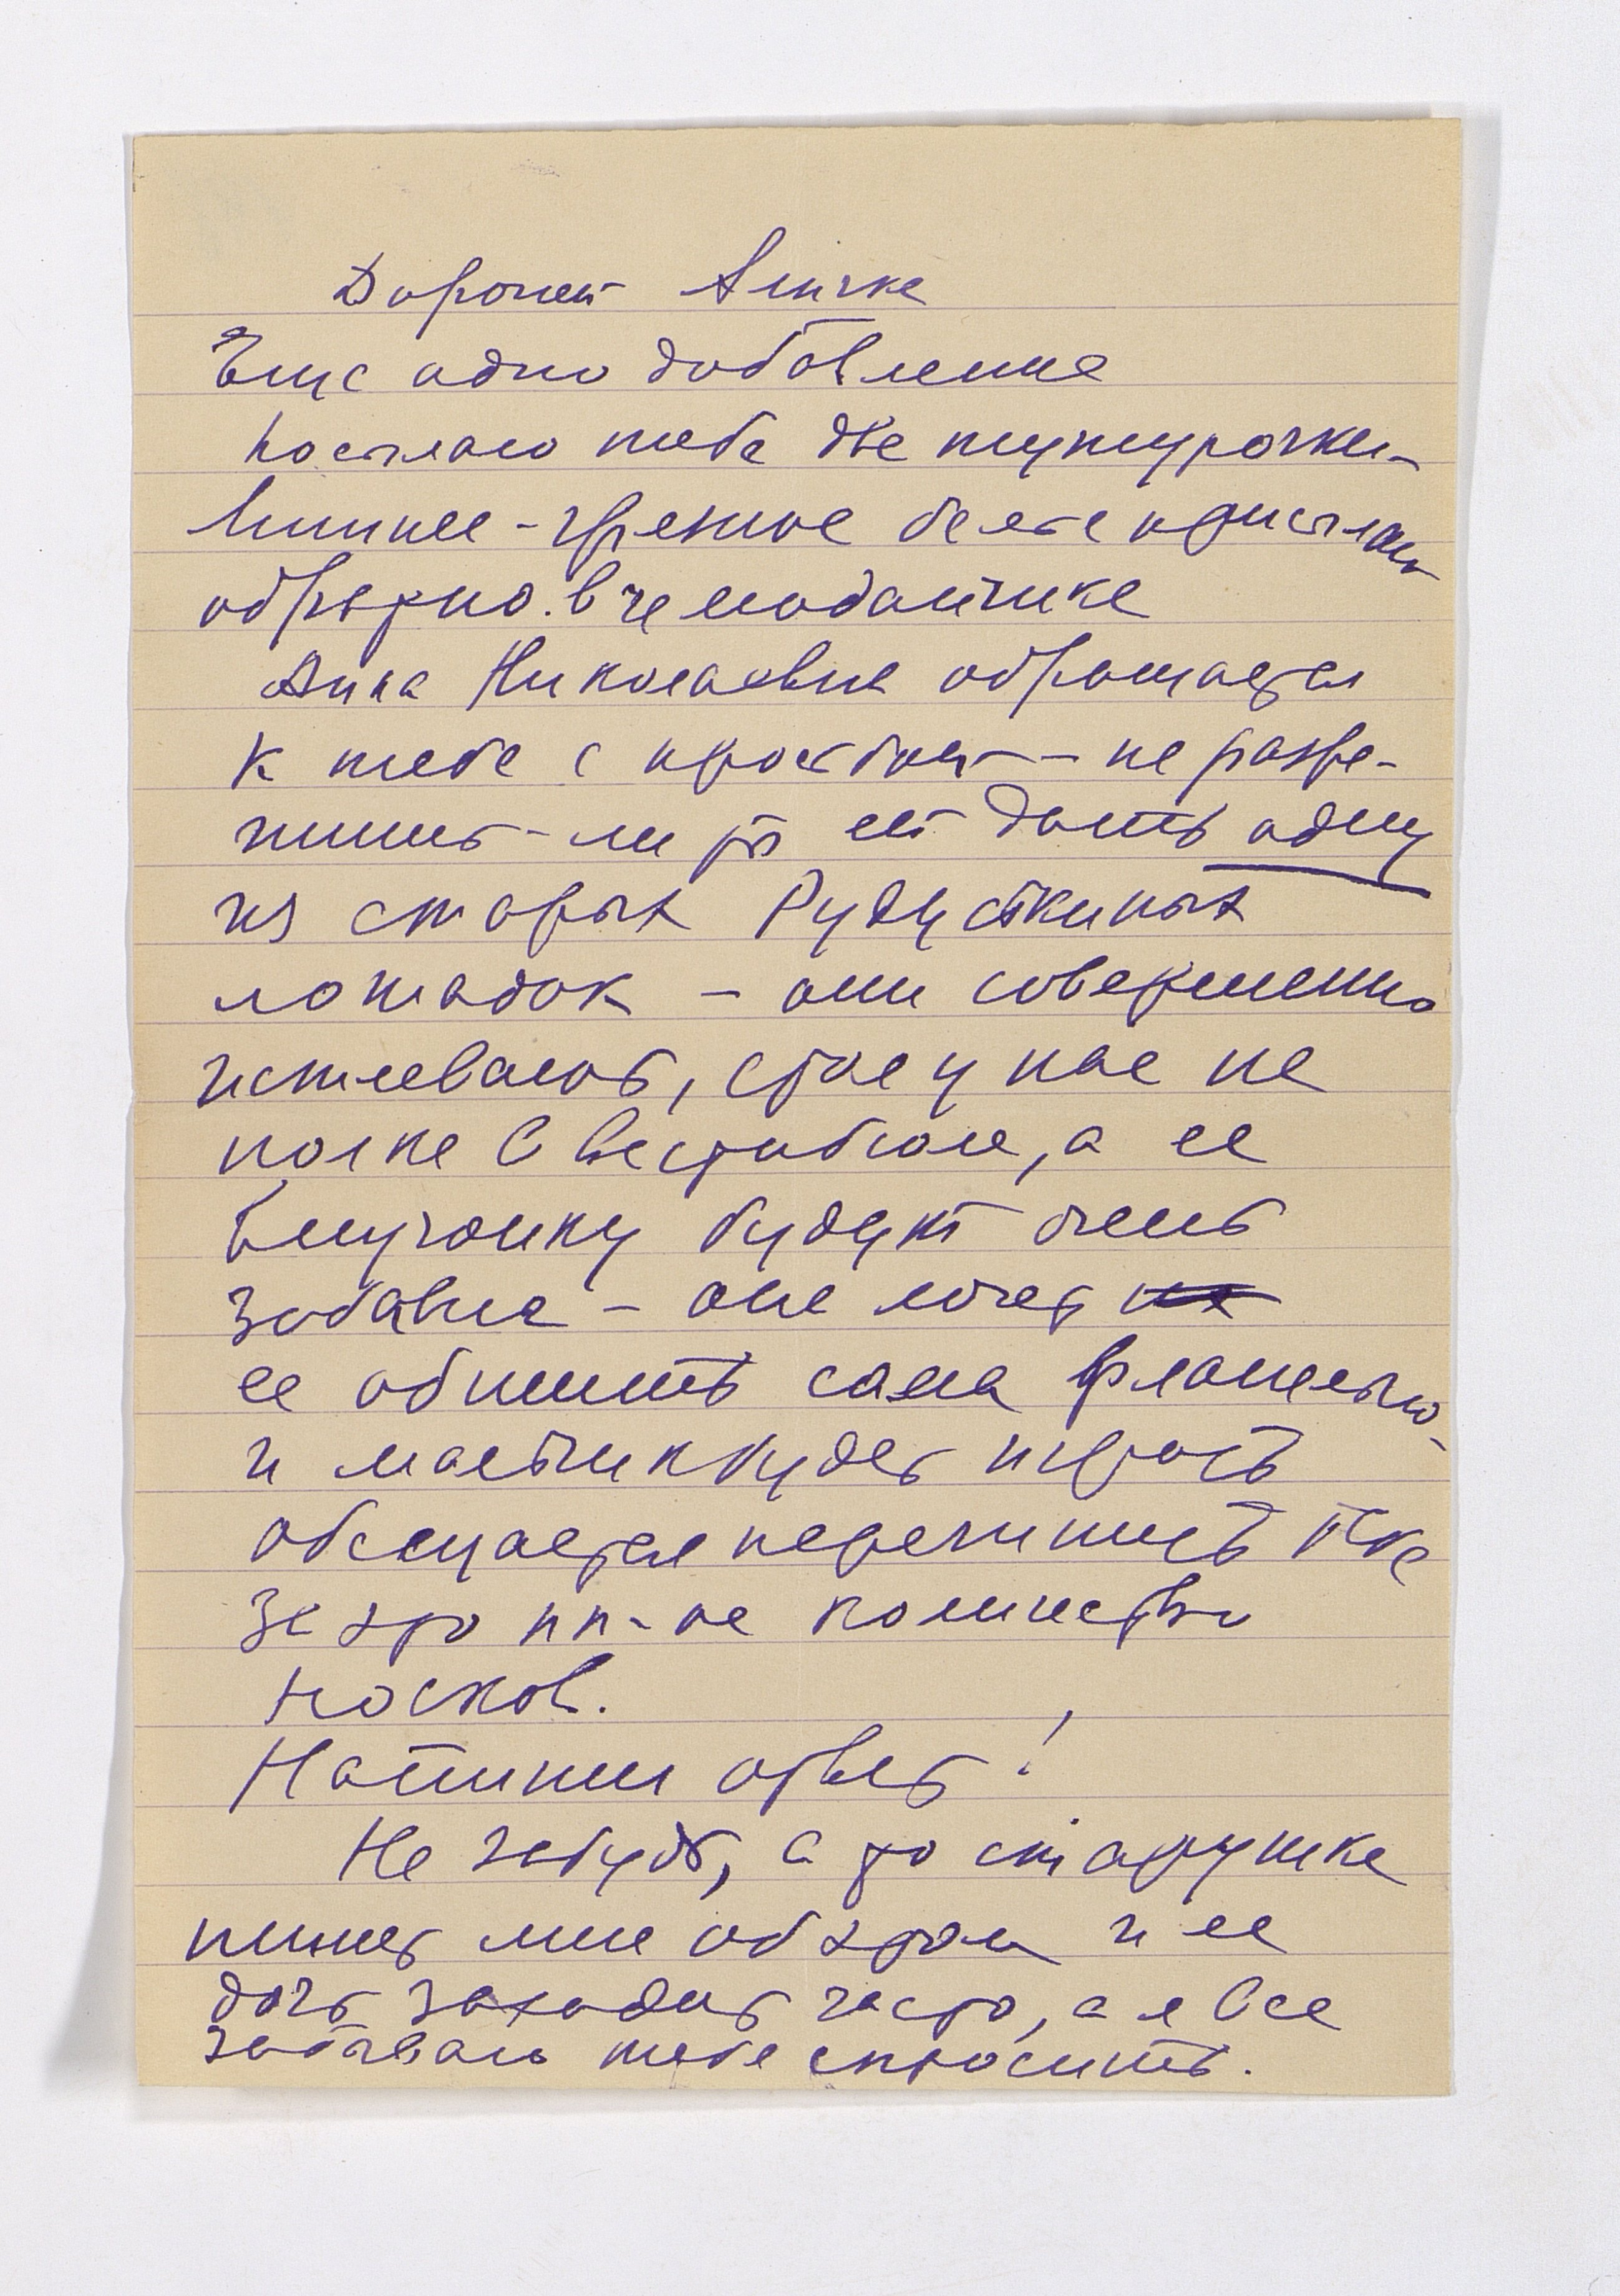 Дорогой Аличке
Еще одно добавление
Посылаю тебе две тужурочки
Лишнее - грязное белье присылай
обратно. в чемоданчике
Анна Николаевна обращается
к тебе с просьбой - не разре-
шишь - ли ты ей дать одну
из старых
лошадок - они совершенно
истлевают, стоя у нас на
полке в вестибюле, а ее
внучонку будет очень
забавна - она хочет их
ее обшить сама фланелью
и мальчик будет играть
обещается перечинить тебе
за это кк-ое количество
носков.
Напиши ответ!
Не забудь, а то старушка
пишет мне об этом и ее
дочь заходит часто, а я все
забываю тебя спросить.